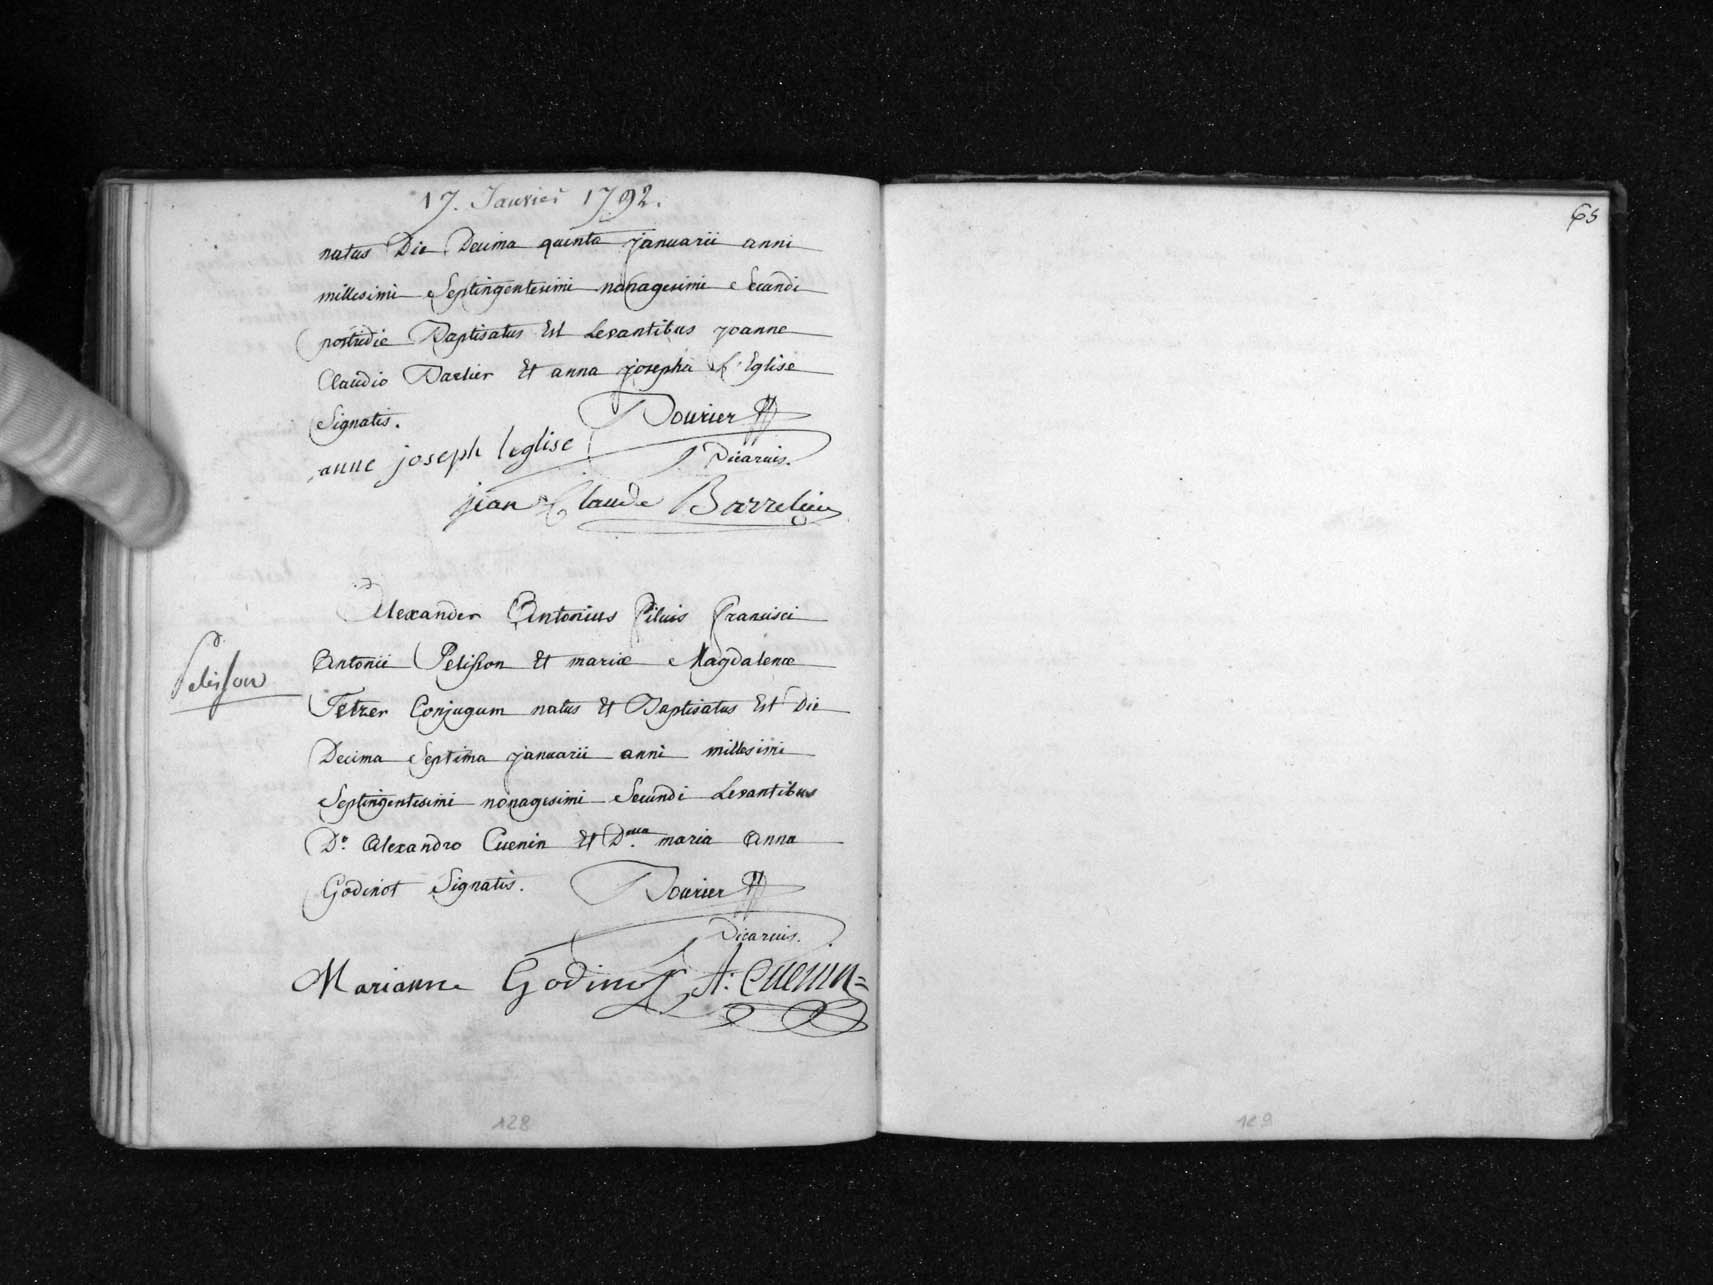 17. Janvier 1792.
natus Die Decima quinta januarii anni
millesimi Septingentesimi nonagesimi Secundi
postridie Baptisatus Est Levantibus joanne
Claudio Barlier Et anna josepha L'Eglise
Signatis. Bourier
Vicarius.
anne joseph leglise
jean Claude Barrelier
Alexander Antonius Filius Francisci
Antonii Pelisson Et mariæ Magdalenæ
Fetzer Conjugum natus Et Baptisatus Est Die
Decima Septima januarii anni millesimi
Septingentesimi nonagesimi Secundi Levantibus
Do. Alexandro Cuenin Et D.lla maria Anna
Godinot Signatis. Bourier
Vicarius.
Marianne Godinot A: Cuenin
Pelisson
128
65
129